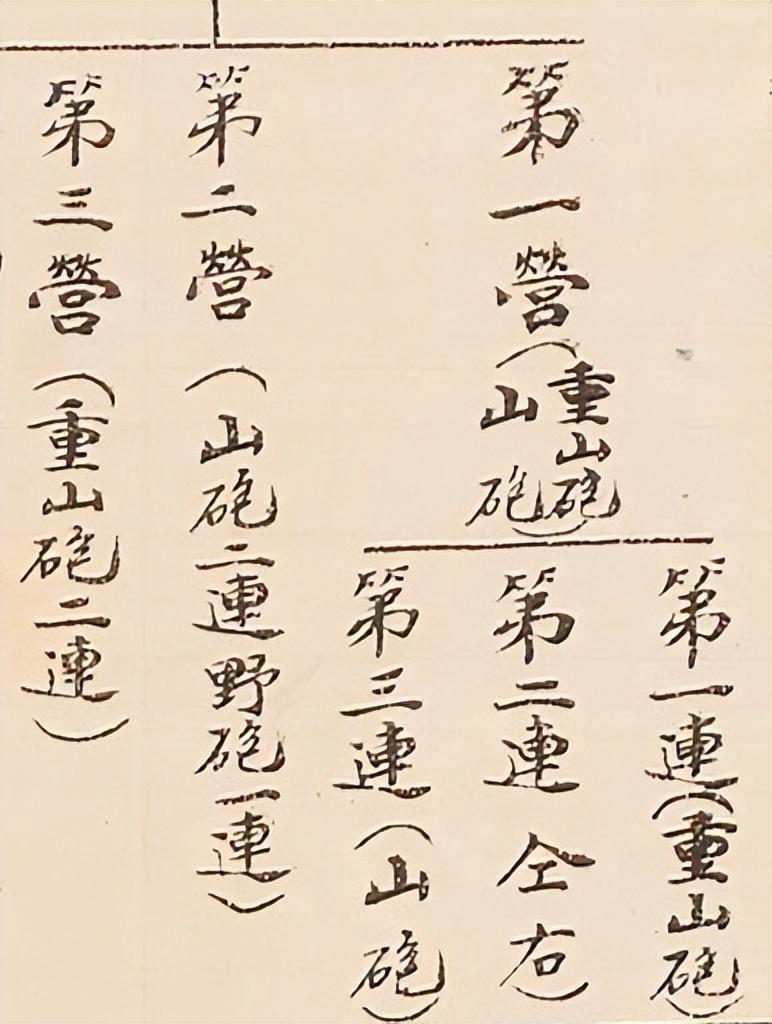 第一營(重山砲
山砲)
第一連(重山砲)
第二連 仝右)
第三連(山砲)
第二營(山砲二連野砲一連)
第三營(重山砲二連)